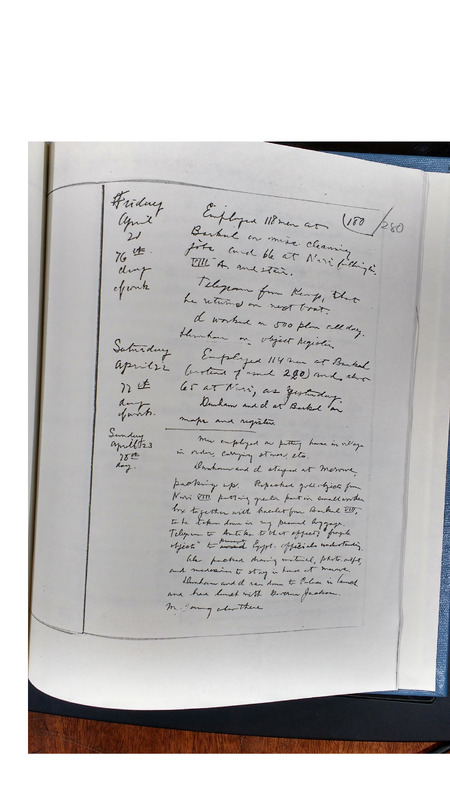 Friday
April
21
76th
day
of work
180
280
Employed 118 men at
Barkal on misc cleaning
jobs and 66 at Nuri filling
VIII A and stair.
Telegram from Kemp, that
he returns on next boat.
I worked on 500 plan all day.
Dunham on object register.
Saturday
April 22
77th
day
of work.
Employed 114 men at Barkal
(instead of usual 220) and also
65 at Nuri, as yesterday.
Dunham and I at Barkal on
maps and register
Sunday
April 23
78th
day.
Men employed on putting house in village
in order, carrying stones, etc.
Dunham and I stayed at Merowe,
packing up. Repacked gold objects from
Nuri VIII putting greater part in small wooden
box together with bracelet from Barkal
to be taken down in my personal baggage.
Telegram to that effect, "fragile
objects" to prevent Egypt. officials
Also packed drawing material, photo.
and medicines to stay in house at Merowe.
Dunham and I ran down to in launch
and had lunch with Governor Jackson.
Mr. Young also there